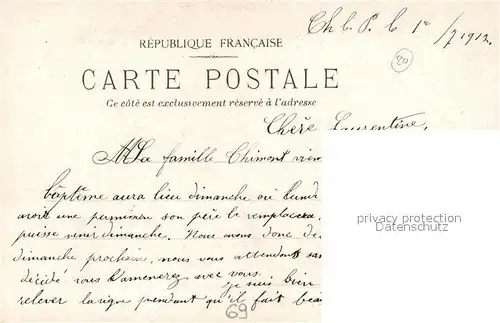 Ch l. P. le 1er/7 1912.
RÉPUBLIQUE FRANÇAISE
20
CARTE POSTALE
Ce côté est exclusivement réservé à l'adresse
Chère Laurentine,
La famille Chimont vien
baptême aura lieu dimanche ou lund
avoir une permission son père le remplacera
puisse venir dimanche. Nous avons donc de
dimanche prochain, nous vous attendons sa
décidé vous l'amènerez avec vous.
je suis bien
relever la vigne pendant qu'il fait beau
69
privacy protection
Datenschutz